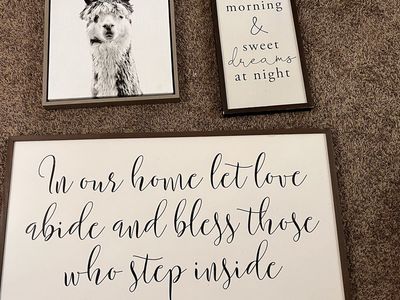 morning
&
sweet
dreams
at night
In our home let love
abide and bless those
who step inside